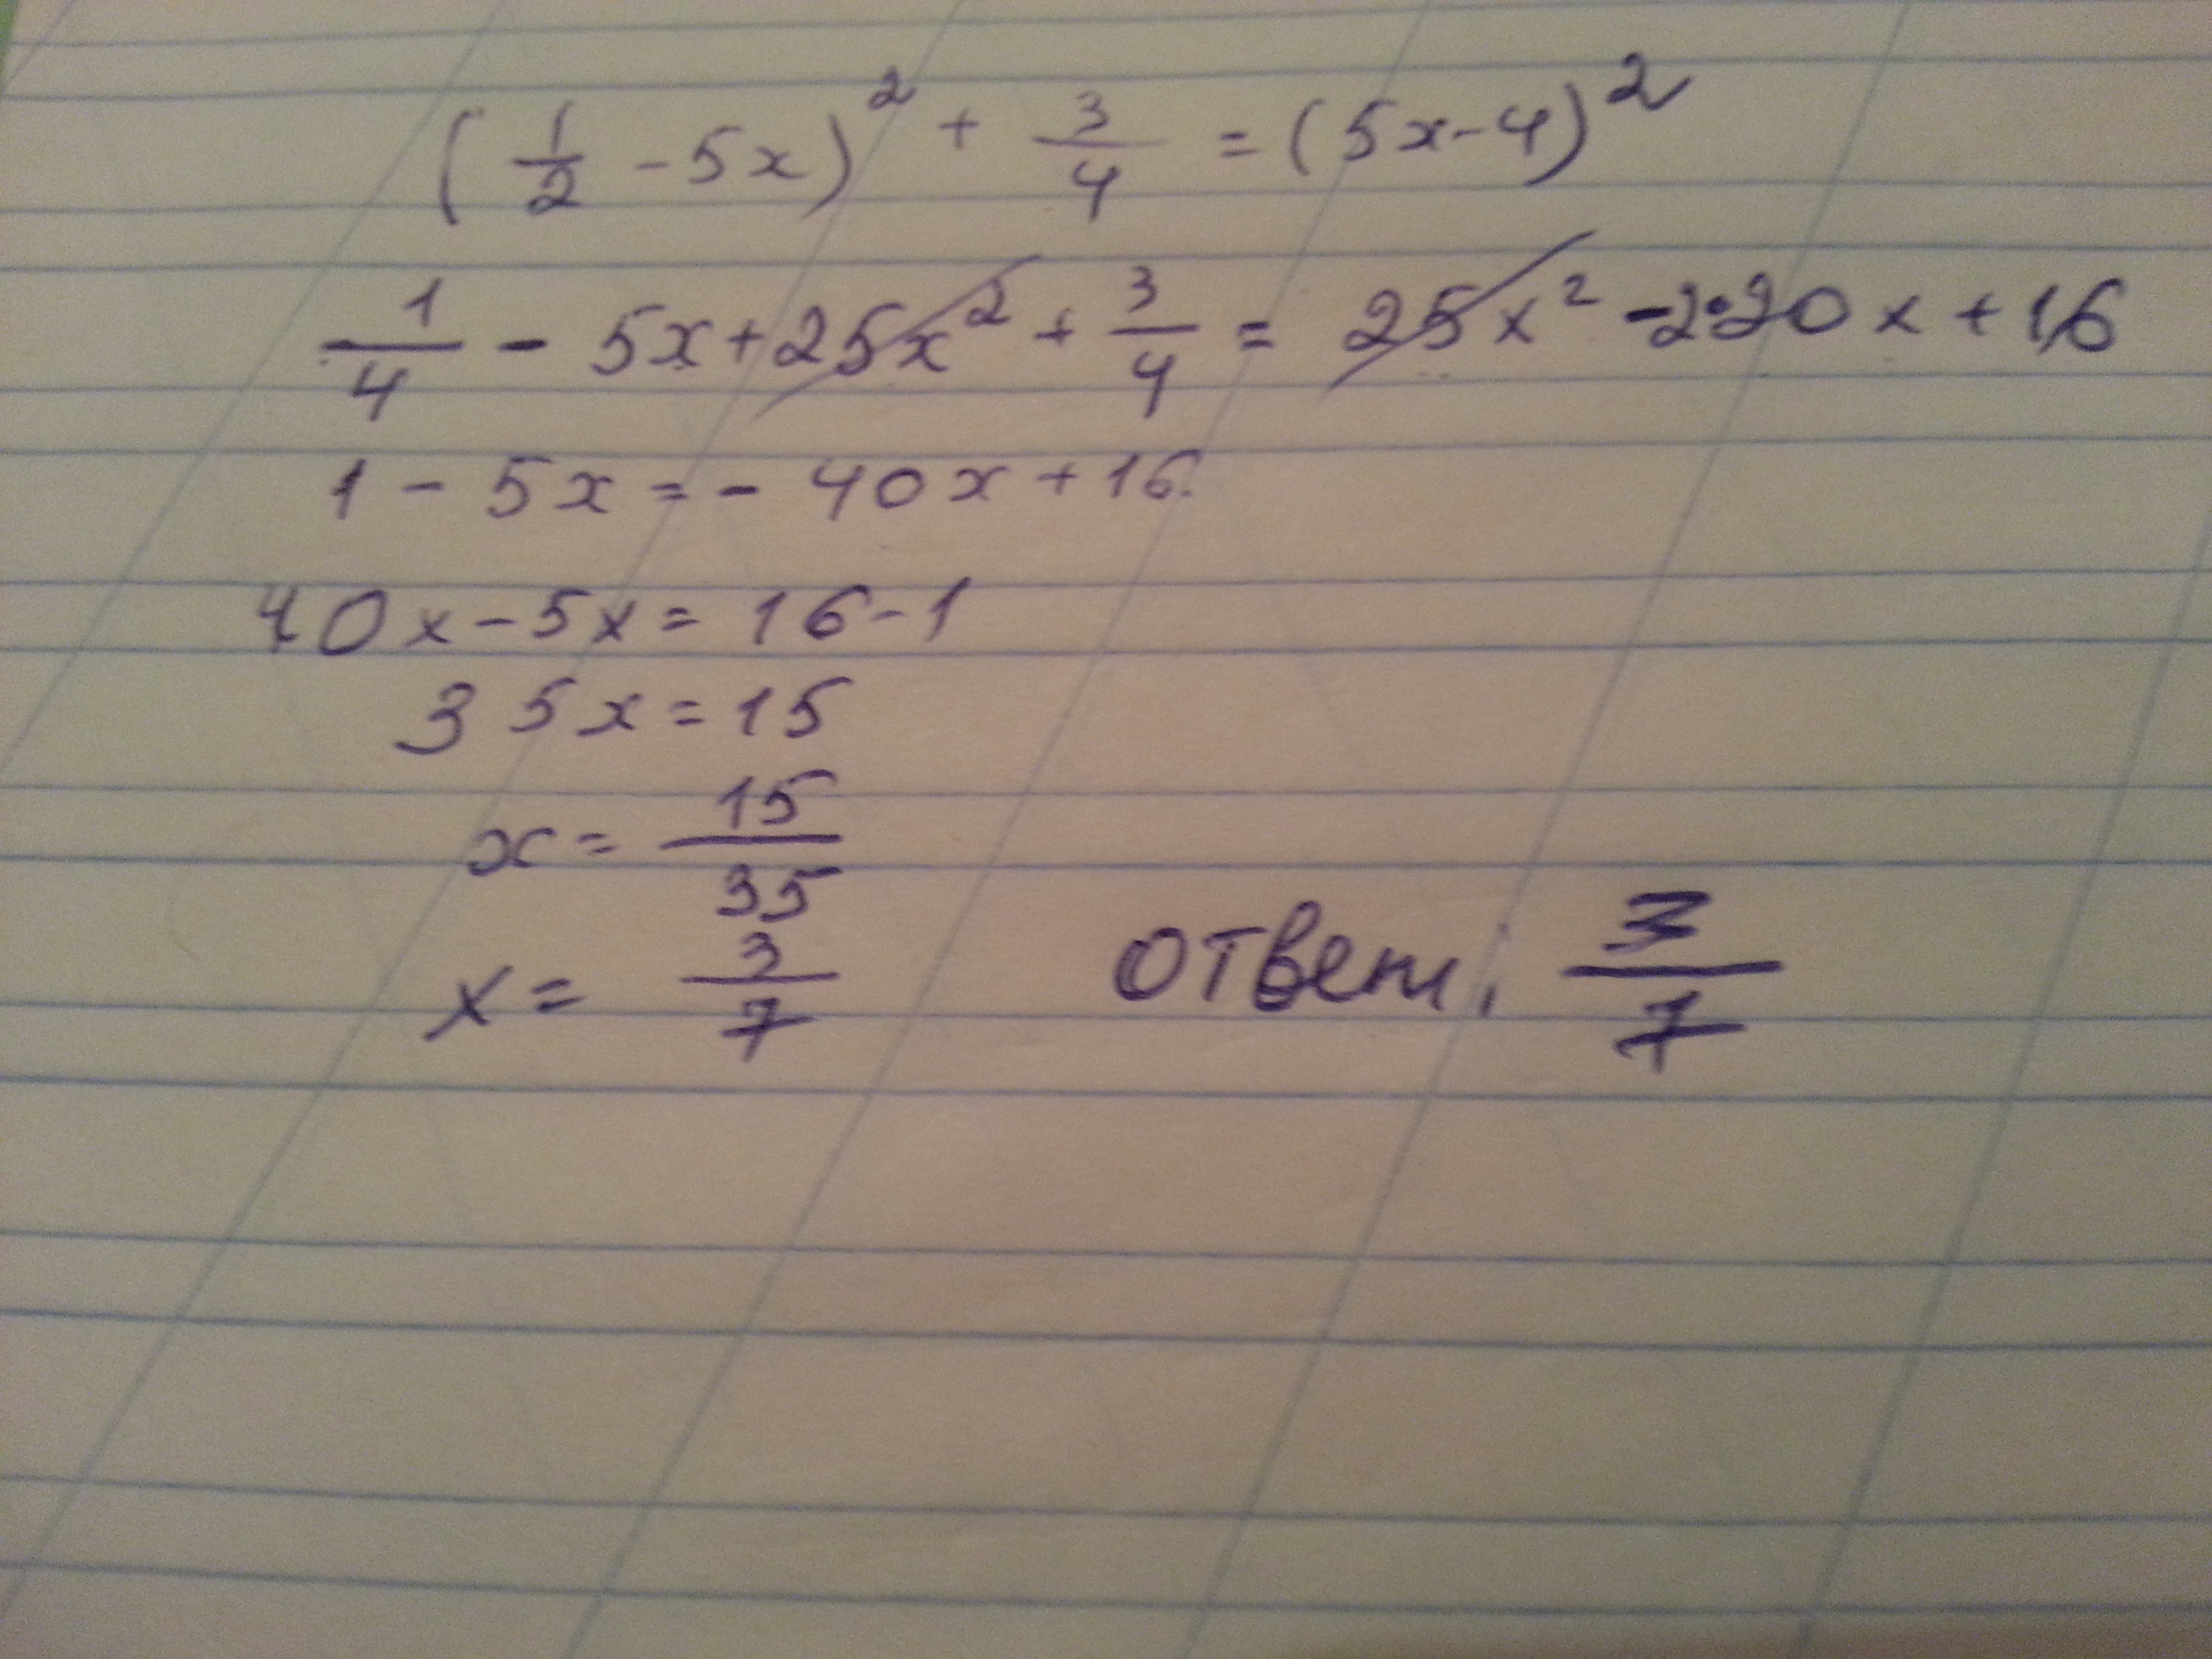 (1/2 - 5x)² + 3/4 = (5x - 4)²
1/4 - 5x + 25x² + 3/4 = 25x² - 2·20x + 16
1 - 5x = - 40x + 16
40x - 5x = 16 - 1
35x = 15
x = 15/35
x = 3/7 ответ: 3/7